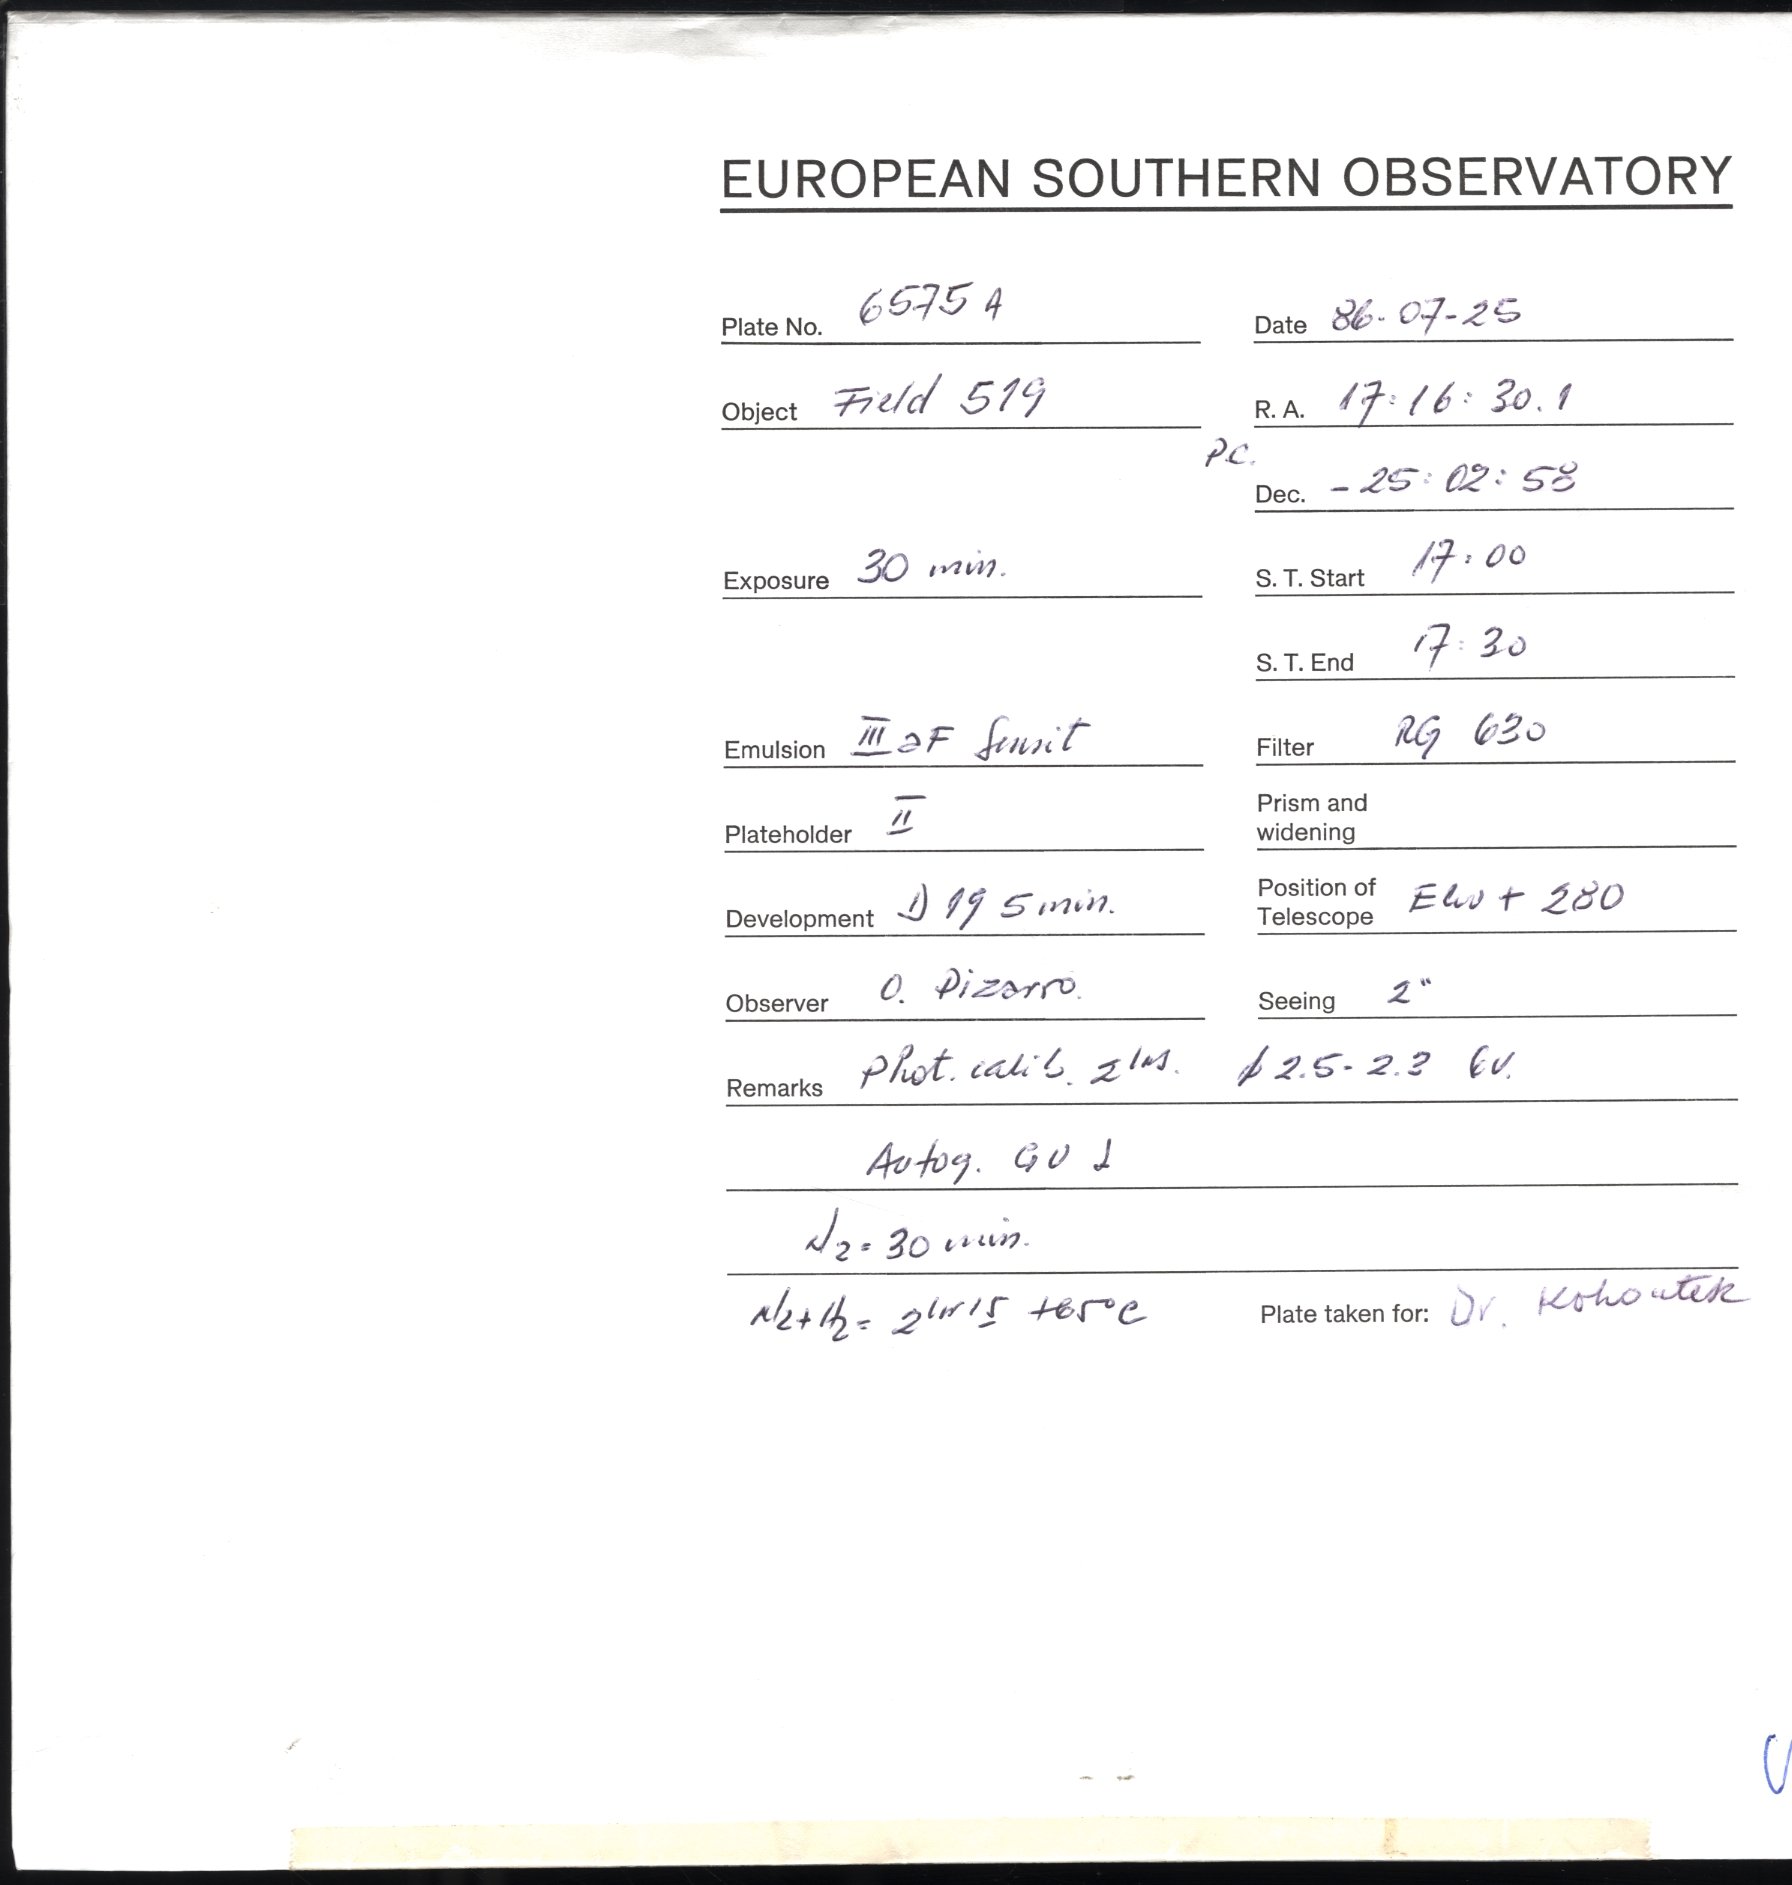 EUROPEAN SOUTHERN OBSERVATORY
Plate No. 6575 A
Date 86-07-25
Object Field 519
R. A. 17:16:30.1
P.C.
Dec. -25:02:58
Exposure 30 min.
S. T. Start 17:00
S. T. End 17:30
Emulsion III aF Sensit
Filter RG 630
Plateholder II
Prism and
widening
Development D 19 5 min.
Position of
Telescope + 280
Observer O. Pizarro.
Seeing 2"
Remarks Phot. calib. 2.5-2.3
Autog. GV 1
N2 = 30 min.
N2+H2 = +65°C
Plate taken for: Dr. Kohoutek